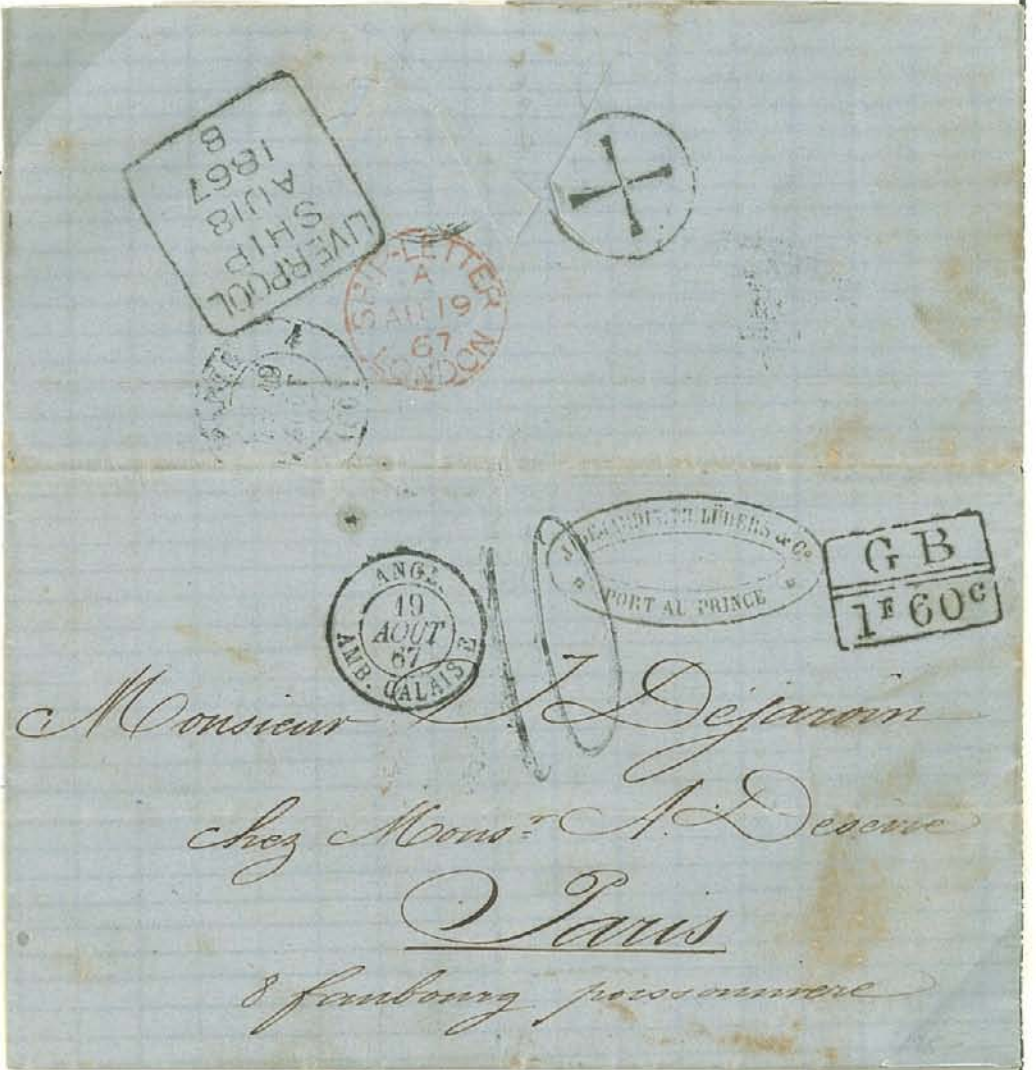 LIVERPOOL
SHIP
AU18
1867
8
SHIP-LETTER
A
AU 19
67
LONDON
J. DEJARDIN, TH. LÜDERS & Cº
PORT AU PRINCE
GB
1F 60c
ANGL.
19
AOUT
67
AMB. CALAIS E
10
Monsieur J Dejardin
chez Monsr A. Deseve
Paris
8 faubourg poissonniere